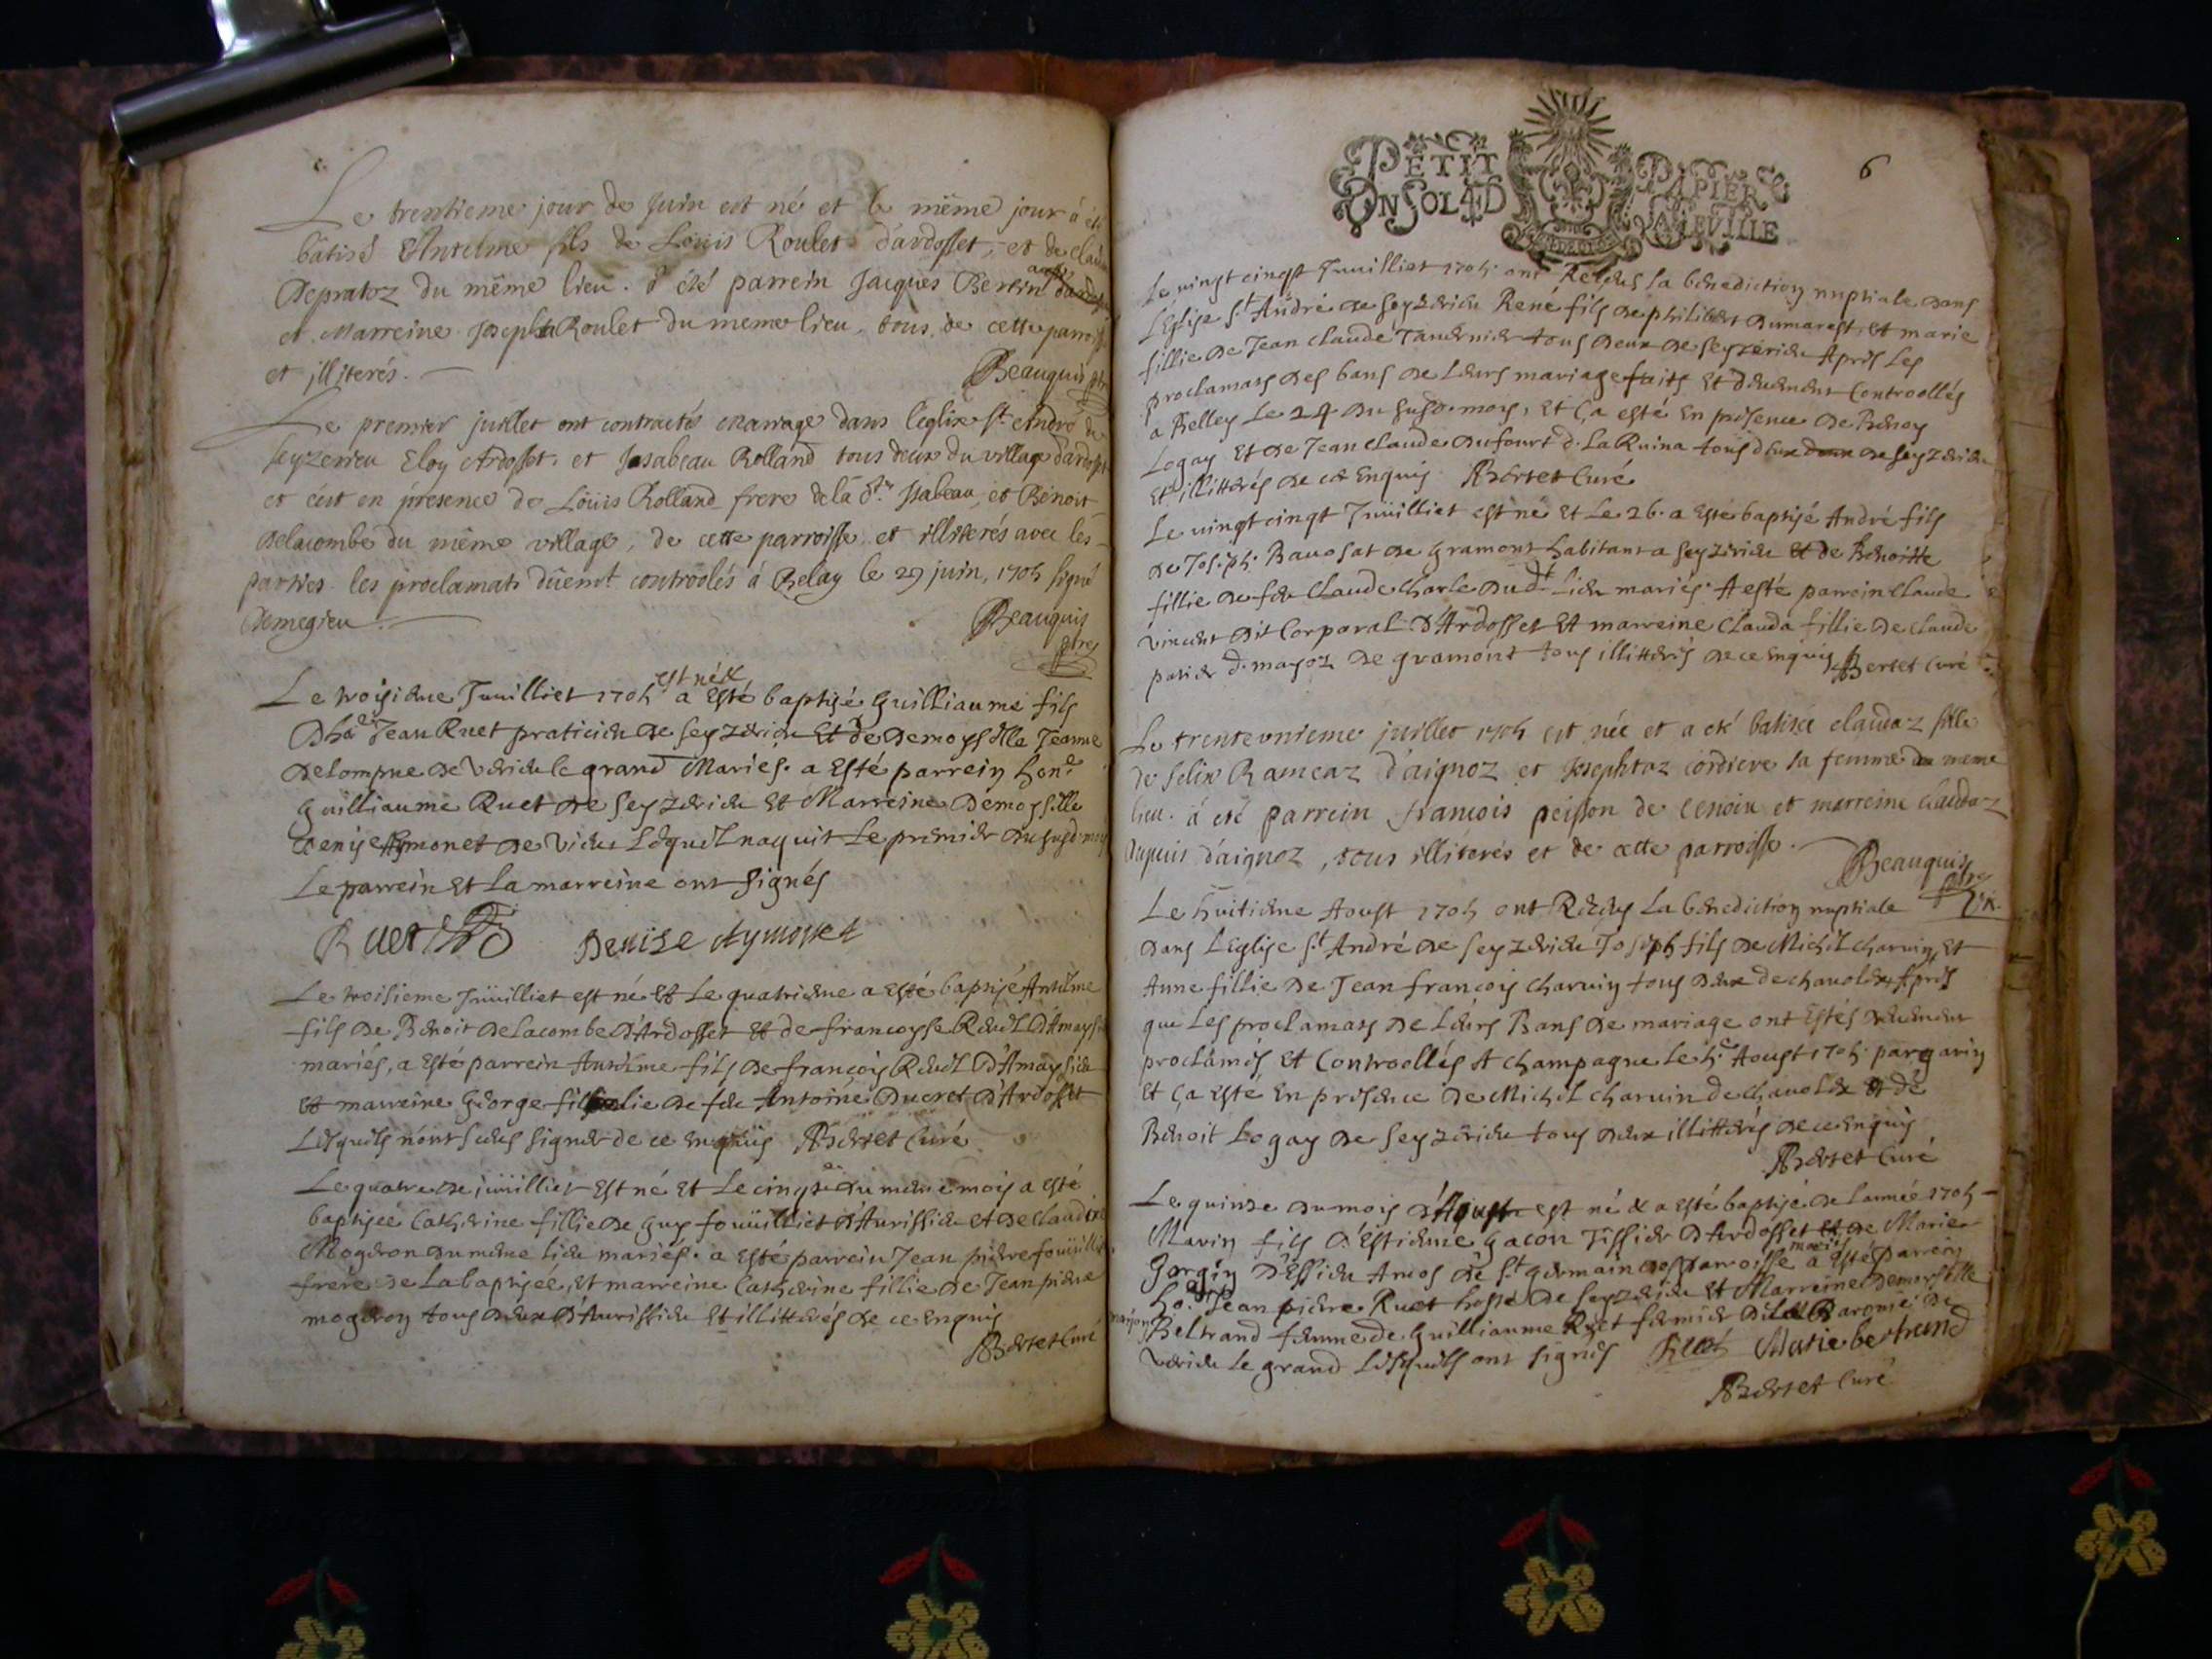 Le trentieme jour de Juin est né et le même jour à été
bâtisé Antelme fils de Loüis Roulet d'ardosset, et de
Depratoz du même lieu. à été parrein Jacques Bertin
et Marreine Josephta Roulet du meme lieu, tous de cette parroisse
et illiterés.
Beauquis ptre
Le premier juillet ont contractés mariage dans l'eglise St André de
seyzerieu Eloy Ardosset et Isabeau Rolland tous deux du village d'ardosset
et c'est en presence de Loüis Rolland frere de la dte Isabeau, et Benoit
Delacombe du même village, de cette parroisse et illiterés avec les
parties. les proclamats dûement controôlés à Belay le 29 juin, 1705 signé
Demegieu
Beauquis
ptre
est né &
Le troisieme Juuilliet 1705 a Esté baptisé Guilliaume fils
Jean Ruet praticien de seyzerieu Et de Demoyselle Jeanne
Delompne de Verieu le grand Mariés. a Esté parrein
Guilliaume Ruet de seyzerieu Et Marreine Demoyselle
Denise Aymonet de Vieu Lequel naquit Le premier du susd. mois
Le parrein Et La marreine ont signés
Ruet Denise Aymonet
Le troisieme Juüilliet est né Et Le quatrieme a Esté baptisé Antelme
fils de Benoit Delacombe d'Ardosset Et de francoyse
mariés, a Esté parrein Antelme fils de françois
et marreine George fillie de feu Antoine Ducret d'Ardosset
Lesquels n'ont sceus signer de ce enquis Bertet Curé
Le quatre de juüilliet Est né Et Le cinq du mesme mois a esté
baptisée Catherine fillie de Guy foüilliet d'Aurissieu et de Claudine
Mogeron du mesme lieu mariés. a Esté parrein Jean pierre foüilliet
frere de La baptisée, Et marreine Catherine fillie de Jean pierre
mogeron tous deux d'Aurissieu Et illitterés de ce enquis
Bertet Curé
PETIT PAPIER
UN SOL 4 D
6
Le vingt cinqt Juuilliet 1705 ont Receus la benediction nuptiale dans
L'Eglise St André de seyzerieu René fils de philibert Dumarest, et marie
fillie de Jean claude Tavernier tous deux de seyzerieu Après Les
proclamats des bans de Leurs mariage faits Et deuement Controollés
a Belley Le 24 du susd. mois, Et ça esté En présence de Benoy
Logay Et de Jean claude dufourt d. La Ruina tous deux de seyzerieu
Et illitterés de ce Enquis Bertet Curé
Le vingt cinqt Juüilliet est né Et Le 26. a Esté baptisé André fils
de Joseph Bavosat de Gramont habitant a seyzerieu Et de Benoitte
fillie de feu Claude Charle dudt. Lieu mariés. A esté parrein Claude
vincent dit Corporal d'Ardosset Et marreine Clauda fillie de claude
d. mayoz de gramont tous illitterés de ce Enquis Bertet Curé
Le trenteunieme juillet 1705 est née et a eté batisée claudaz fille
de felix Rameaz d'aignoz et Josephtaz cordiere sa femme du meme
lieu. à eté parrein francois peisson de et marreine claudaz
dupuis d'aignoz, tous illiterés et de cette parroisse.
Beauquis
ptre
Le huitieme Aoust 1705 ont Receus La benediction nuptiale
Dans L'Eglise St André de seyzerieu Joseph fils de Michel Charvin, Et
Anne fillie de Jean francois Charvin tous deux de chavolex Après
que Les proclamats de Leurs Bans de mariage ont Estés deuement
proclamés Et Controollés A champagne Le 5e Aoust 1705 par garin
Et ça Esté En presence de Michel charvin de chavolex Et de
Benoit Logay de seyzerieu tous deux illitterés de ce enquis
Bertet Curé
Le quinze du mois d'Aoust est né & a Esté baptisé de l'année 1705
Marin fils d'Estienne gacon Tissier d'Ardosset et de Marie
Gorgin D'Essieu de St germain parroisse mariés a Esté parrein
Jean pierre Ruet de seyzerieu Et Marreine Demoyselle
Beltrand femme de Guilliaume Ruet fermier de La Baronie de
verieu Le grand Lesquels ont signés Ruet Marie bertrand
Bertet Curé